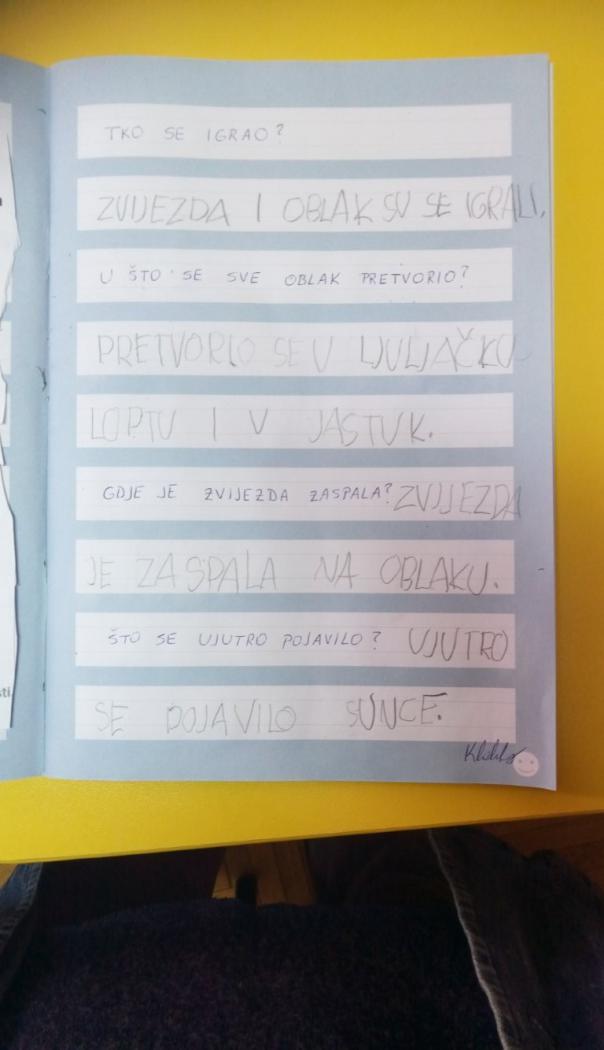 TKO SE IGRAO?
ZVIJEZDA I OBLAK SU SE IGRALI.
U ŠTO SE SVE OBLAK PRETVORIO?
PRETVORIO SE U LJULJAČKU
LOPTU I U JASTUK.
GDJE JE ZVIJEZDA ZASPALA? ZVIJEZDA
JE ZASPALA NA OBLAKU.
ŠTO SE UJUTRO POJAVILO? UJUTRO
SE POJAVILO SUNCE.
sti